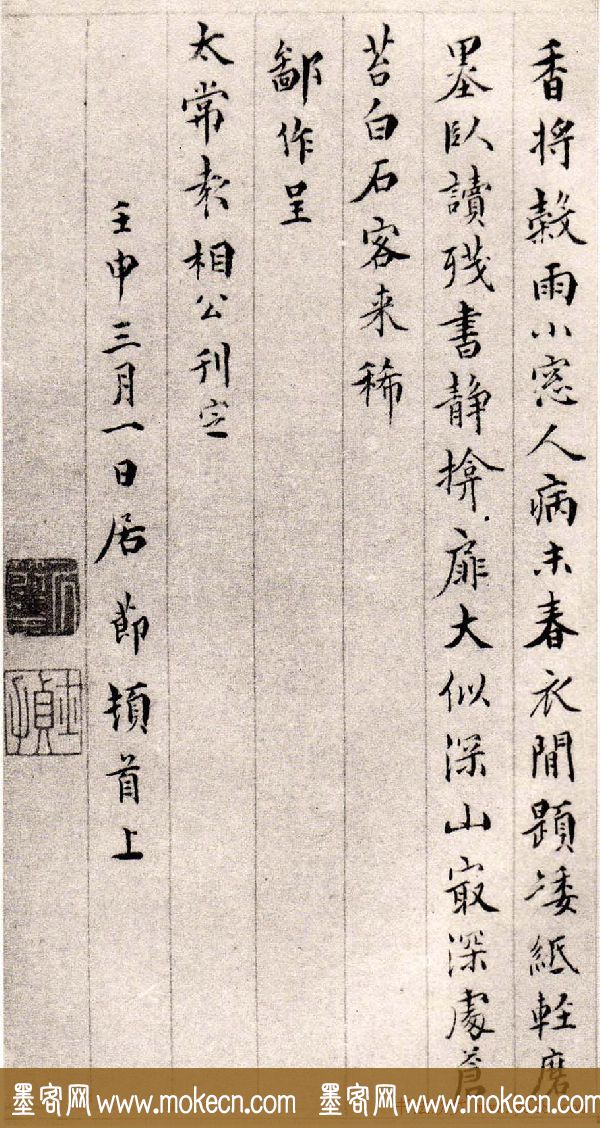 香將穀雨小窓人病未春衣閒題凄紙軽磨
墨臥讀残書静揜扉大似深山㝡深處蒼
苔白石客来稀
鄙作呈
太常袁相公刊定
壬申三月一日居節頓首上
墨客网 www.mokecn.com 墨客网 www.mokecn.com